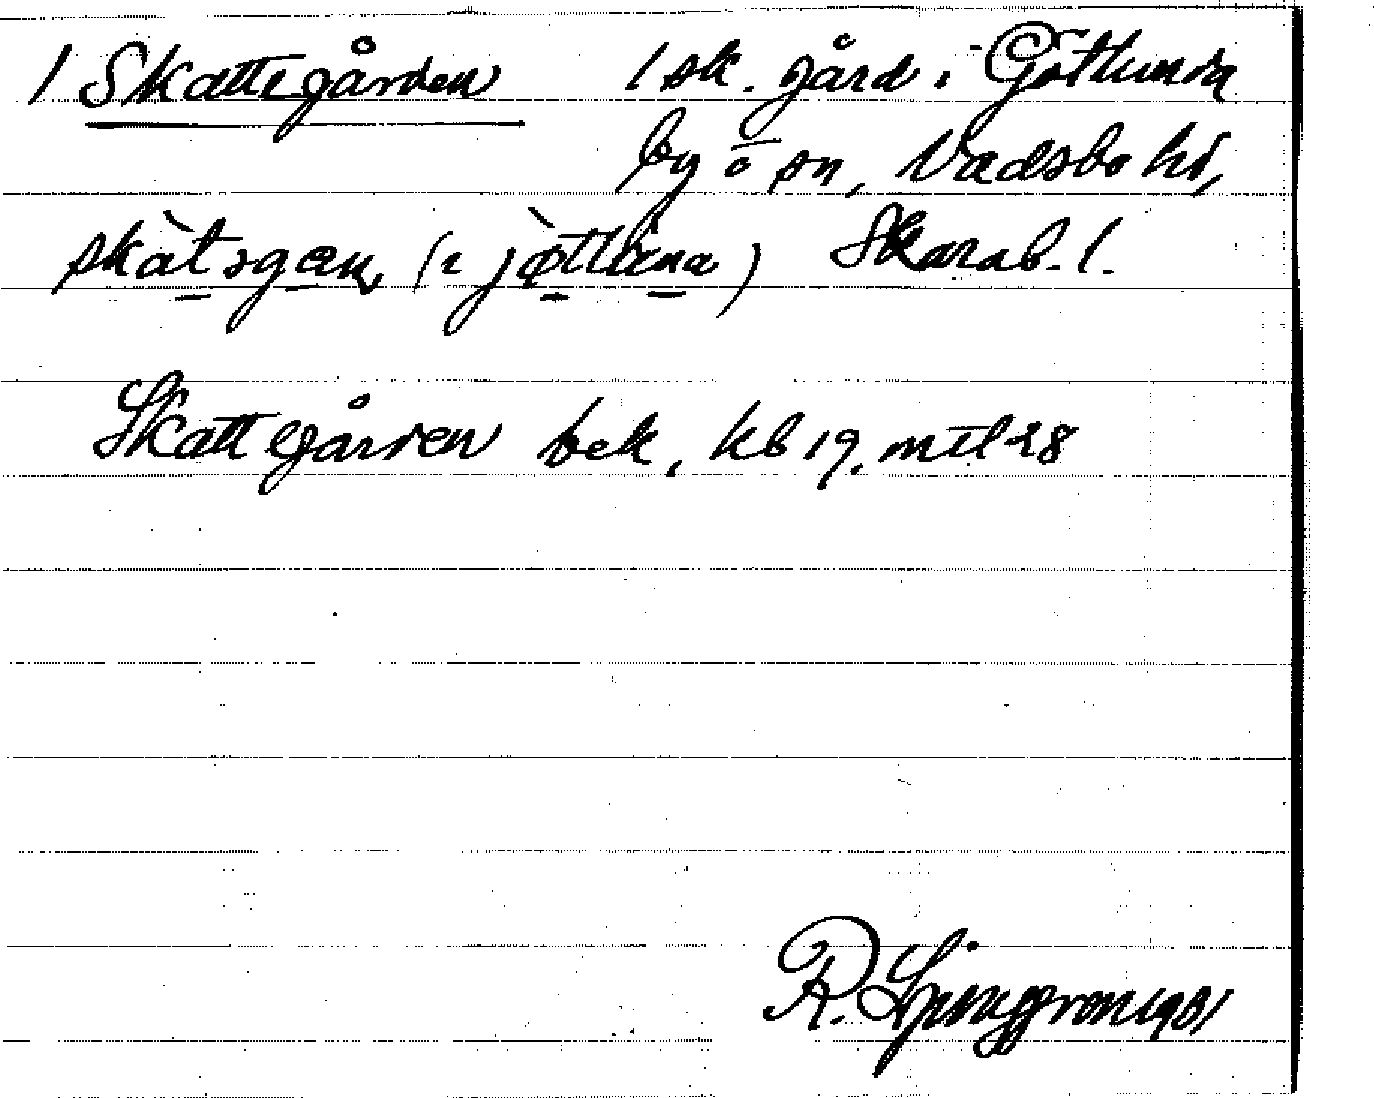 1 Skattegården 1 sk. gård i Götlunda
by o sn, Vadsbo hd,
Skarab. l.
Skattegården bek, kb 19, mtl 28
R. Ljunggren 1931